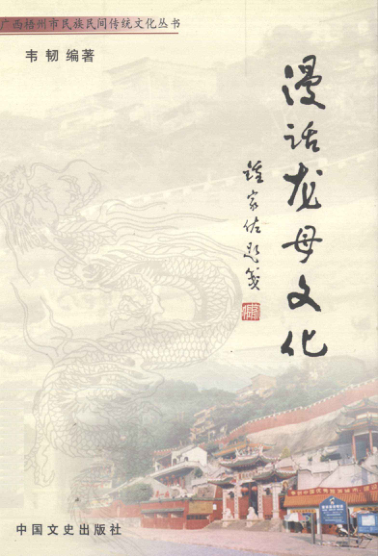 广西梧州市民族民间传统文化丛书
韦 韧 编著
漫话龙母文化
钟家佐题笺
中国文史出版社